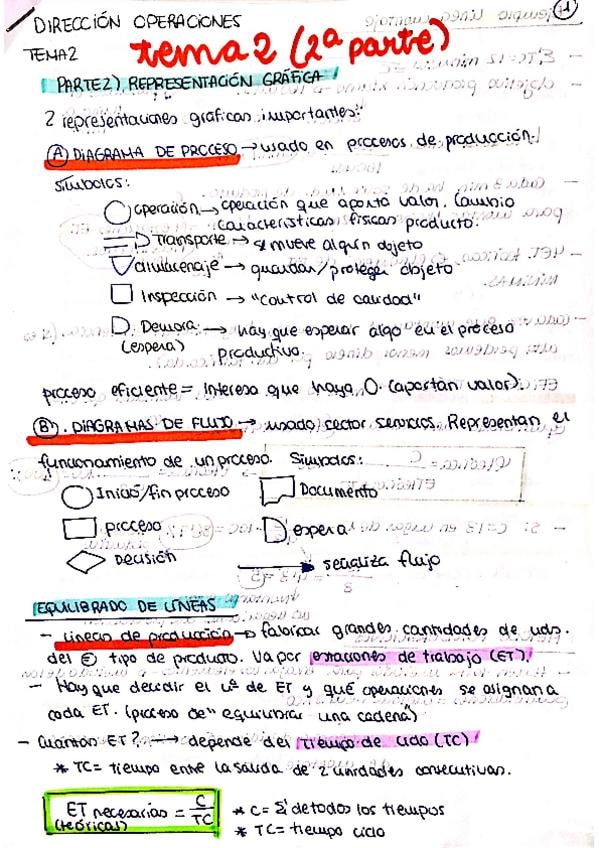 DIRECCIÓN OPERACIONES
TEMA2
tema 2 (2ª parte)
1
PARTE2). REPRESENTACIÓN GRÁFICA
2 representaciones gráficas importantes:
Ⓐ DIAGRAMA DE PROCESO → usado en procesos de producción.
Símbolos:
operación → operación que aporta valor. Cambio
características físicas producto.
Transporte → se mueve algún objeto
almacenaje → guardar/proteger objeto
Inspección → "control de calidad"
D. Demora → hay que esperar algo en el proceso
(espera) productivo.
proceso eficiente = interesa que haya O. (aportan valor).
Ⓑ. DIAGRAMAS DE FLUJO → usado sector servicios. Representan el
funcionamiento de un proceso. Símbolos:
Inicio/fin proceso
Documento
proceso
espera
Decisión
señaliza flujo
EQUILIBRADO DE LÍNEAS
- Líneas de producción → fabricar grandes cantidades de uds.
del = tipo de producto. Va por estaciones de trabajo (ET).
- Hay que decidir el nº de ET y qué operaciones se asignan a
cada ET. (proceso de "equilibrar una cadena")
- Cuántas ET? → depende del tiempo de ciclo (TC)
* TC = tiempo entre la salida de 2 unidades consecutivas.
ET necesarias = C/TC
(teóricas)
* C = Σ de todos los tiempos
* TC = tiempo ciclo